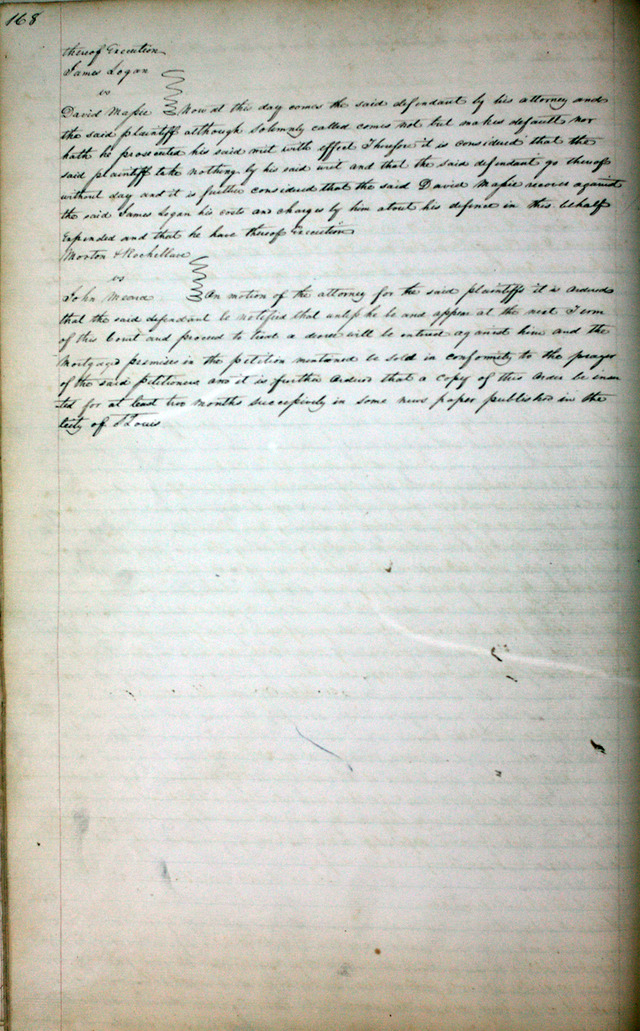 168
thereof Execution
James Logan
vs
David Massie Now at this day comes the said defendant by his attorney and
the said plaintiff although solemnly called comes not but makes default nor
hath he prosecuted his said writ with effect Therefore it is considered that the
said plaintiff take nothing by his said writ and that the said defendant go thereof
without day and it is further considered that the said David Massie recover against
the said James Logan his costs and charges by him about his defence in this behalf
expended and that he have thereof Execution
Morton &
vs
John On motion of the attorney for the said plaintiffs it is ordered
that the said defendant be notified that unless he be and appear at the next Term
of this Court and proceed to trial a decree will be entered against him and the
Mortgaged premises in the petition mentioned be sold in conformity to the prayer
of the said petitioners and it is further ordered that a copy of this order be inser
ted for at least two months successively in some news paper published in the
City of St Louis